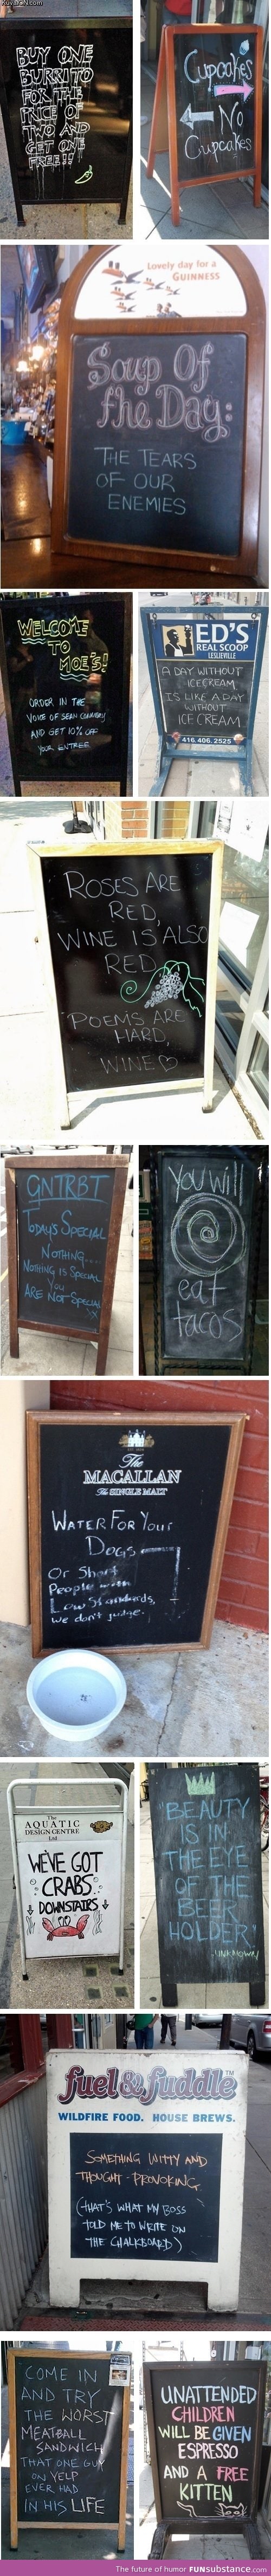 BUY ONE
BURRITO
FOR THE
PRICE OF
TWO AND
GET ONE
FREE!!
Cupcakes
No
Cupcakes
Lovely day for a
GUINNESS
Soup Of
the Day:
THE TEARS
OF OUR
ENEMIES
WELCOME
TO
MOE'S!
ORDER IN THE
VOICE OF SEAN CONNERY
AND GET 10% OFF
YOUR ENTREE
ED'S
REAL SCOOP
LESLIEVILLE
A DAY WITHOUT
ICECREAM
IS LIKE A DAY
WITHOUT
ICE CREAM
416.406.2525
ROSES ARE
RED,
WINE IS ALSO
RED
POEMS ARE
HARD,
WINE
GNTRBT
Today's Special
NOTHING...
NOTHING IS SPECIAL
You
ARE NOT SPECIAL
X
You will
eat
tacos
The
MACALLAN
The SINGLE MALT
WATER FOR YOUR
DOGS
Or Short
People with
Low Standards,
we don't judge.
The
AQUATIC
DESIGN CENTRE
Ltd
WE'VE GOT
CRABS
DOWNSTAIRS
"BEAUTY
IS IN
THE EYE
OF THE
BEER
HOLDER"
-UNKNOWN
fuel & fuddle™
WILDFIRE FOOD. HOUSE BREWS.
SOMETHING WITTY AND
THOUGHT-PROVOKING.
(THAT'S WHAT MY BOSS
TOLD ME TO WRITE ON
THE CHALKBOARD)
COME IN
AND TRY
THE WORST
MEATBALL
SANDWICH
THAT ONE GUY
ON YELP
EVER HAD
IN HIS LIFE
UNATTENDED
CHILDREN
WILL BE GIVEN
ESPRESSO
AND A FREE
KITTEN
The future of humor FUNsubstance.com